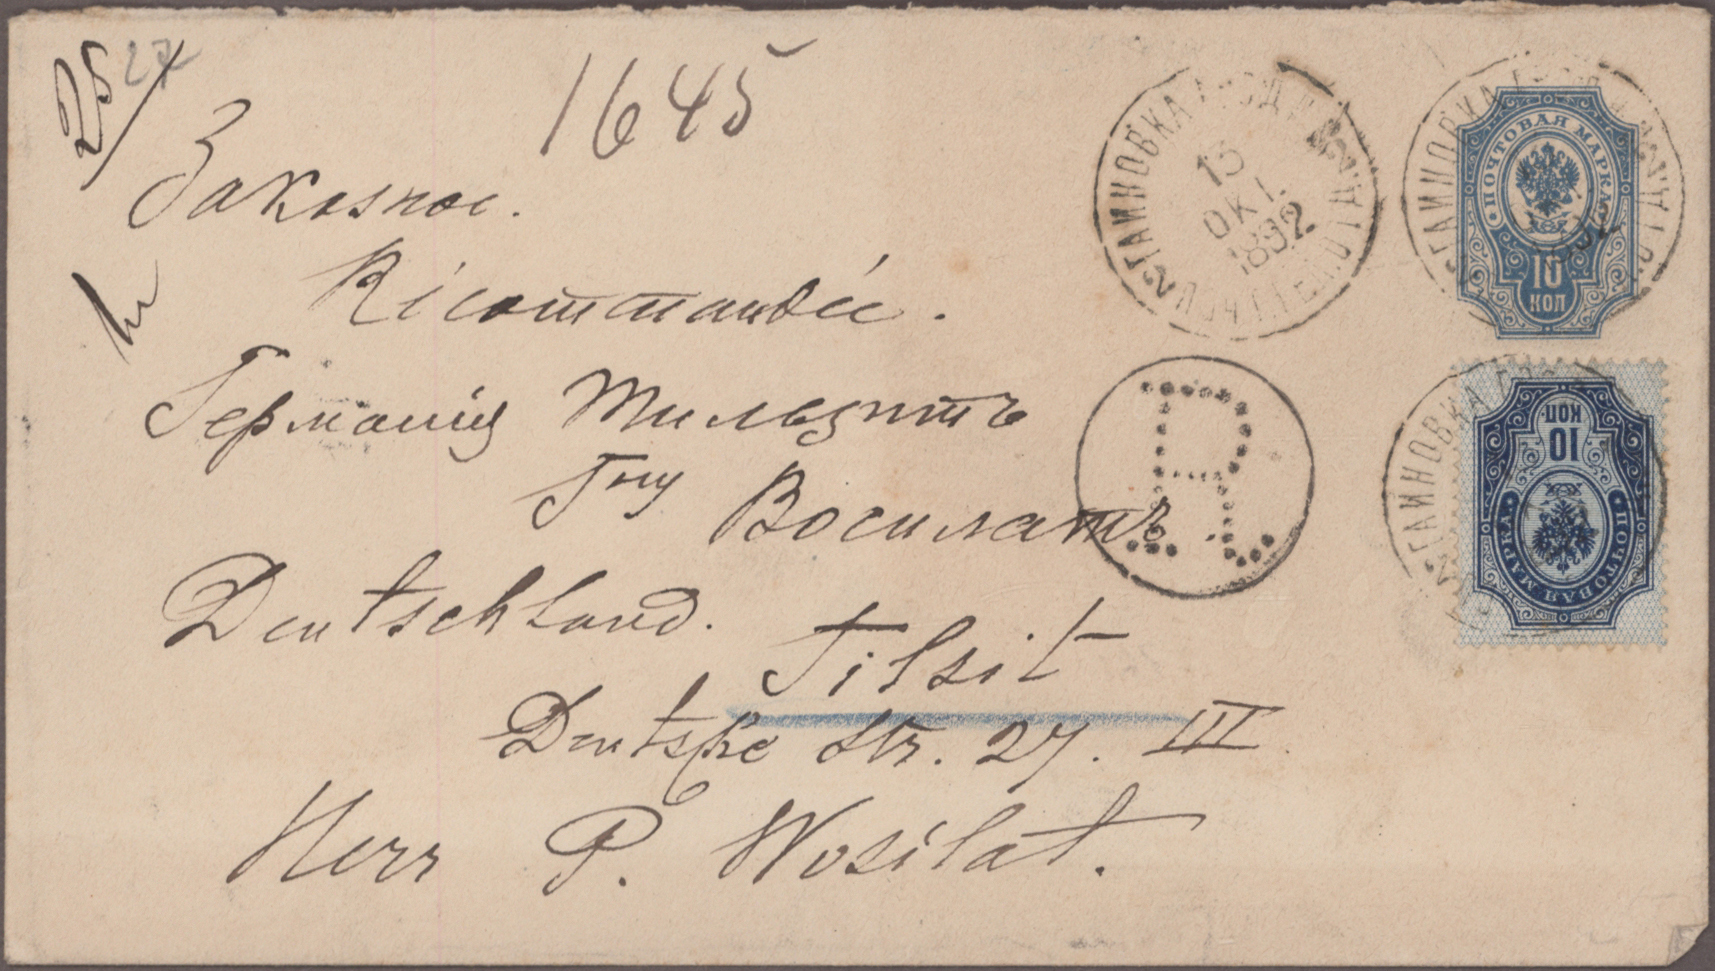 25/
27
1645
Заказное.
Ricommandée.
Германія Тильзитъ
Гну Восилатъ.
Deutschland.
Tilsit
Deutsche Str. 27. III
Herr P. Wosilat.
R
13
ОКТ.
1892
ПОЧТОВАЯ МАРКА
10
КОП
ПОЧТОВАЯ МАРКА
10
КОП